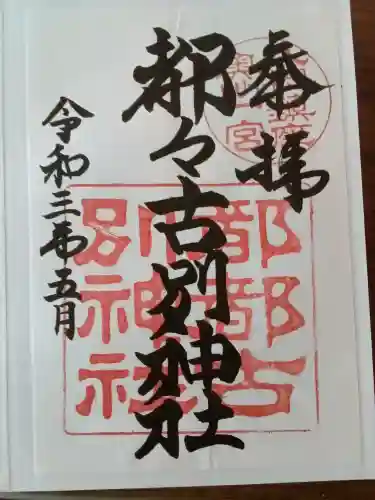 奉拝
都々古別神社
令和三年五月
奥州一宮
都都古
別神社